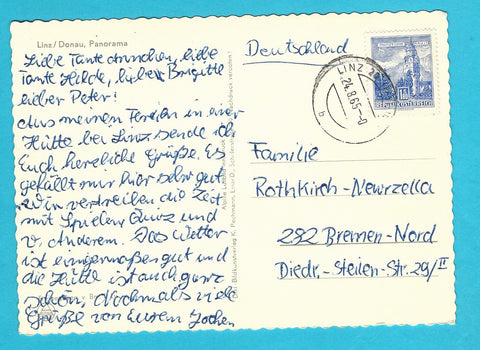 Linz/Donau, Panorama
Liebe Tante Annchen, liebe
Tante Hilde, liebe Brigitte
lieber Peter!
Aus meinen Ferien in einer
Hütte bei Linz sende ich
Euch herzliche Grüße. Es
gefällt mir hier sehr gut
Wir vertreiben die Zeit
mit Spielen, Quiz und
v. Anderem. Das Wetter
ist einigermaßen gut und
die Hütte ist auch ganz
schön, Nochmals viele
Grüße von Eurem Jochen
Deutschland
LINZ 2
24.8.65-0
b
REPUBLIK ÖSTERREICH
Familie
Rothkirch-Newrzella
282 Bremen-Nord
Diedr.-Steilen-Str. 29/II